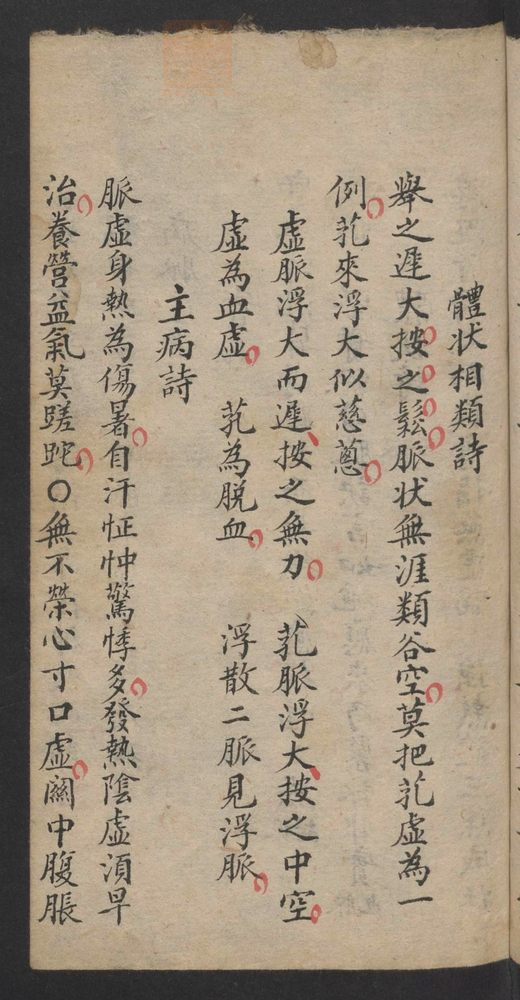 體状相類詩
舉之遲大按之鬆脈状無涯類谷空莫把芤虛為一
例芤來浮大似慈蔥
虛脈浮大而遲按之無力 芤脈浮大按之中空
虛為血虛 芤為脱血 浮散二脈見浮脈
主病詩
脈虛身熱為傷暑自汗怔忡驚悸多發熱陰虛湏早
治養營益氣莫蹉跎○無不榮心寸口虛關中腹脹